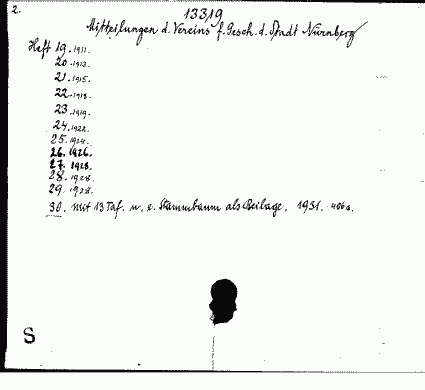 2.
13319
Mitteilungen d. Vereins f. Gesch. d. Stadt Nürnberg
Heft 19. 1911.
20. 1913.
21. 1915.
22. 1918.
23. 1919.
24. 1922.
25. 1924.
26. 1926.
27. 1928.
28. 1928.
29. 1928.
30. mit 13 Taf. u. e. Stammbaum als Beilage. 1931. 406 s.
S